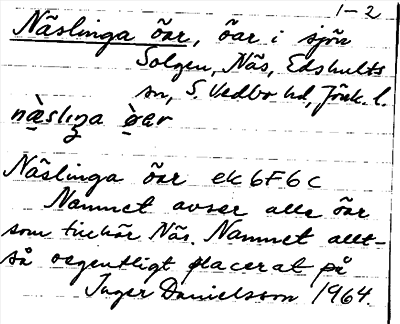 1-2
Näslinga öar, öar i sjön
Solgen, Näs, Edshults
sn, S. Vedbo hd, Jönk. l.
næ̀slıŋa ò̤ar
Näslinga öar ek 6F6c
Namnet avser alla öar
som tillhör Näs. Namnet allt-
så oegentligt placerat på
Inger Danielsson 1964.